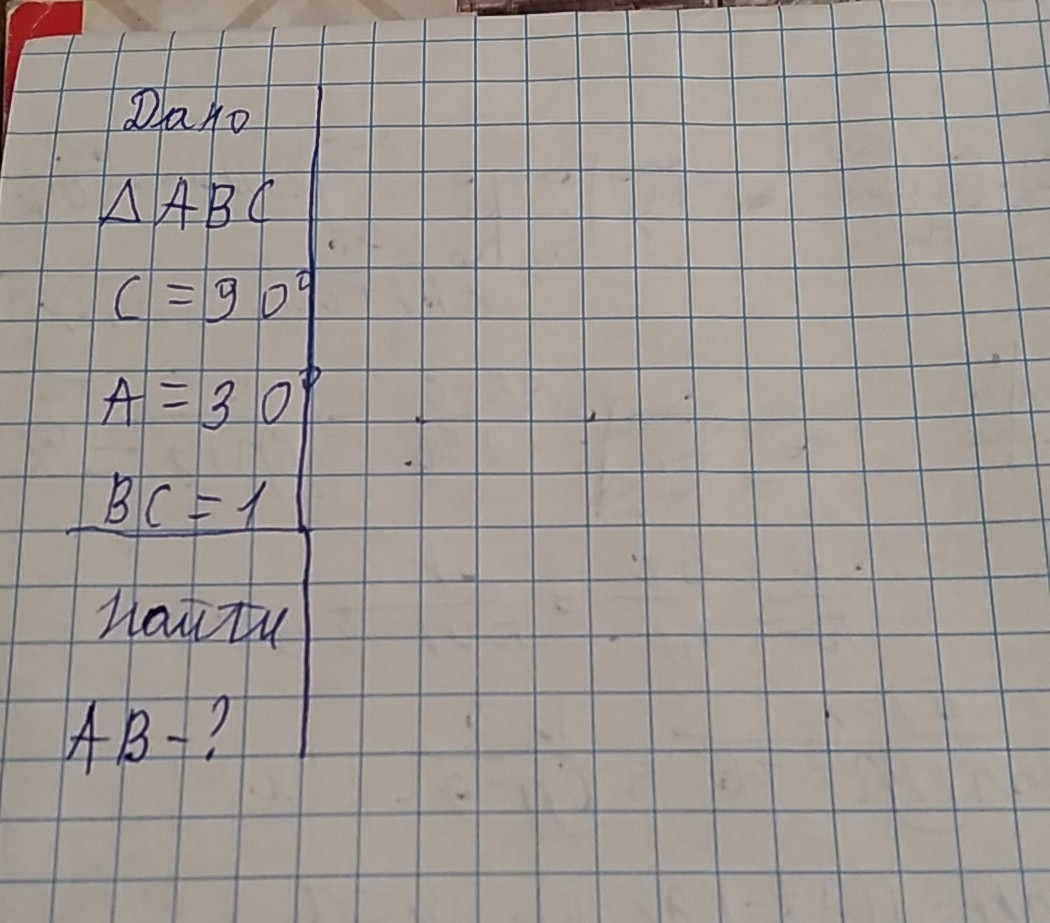 Дано
△ABC
C = 90°
A = 30°
BC = 1
Найти
AB - ?